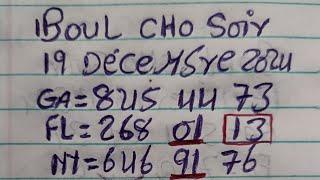 1BOUL CHO SOIr
19 DÉCEMBre 2024
GA=845 44 73
FL=268 01 13
NY=646 91 76